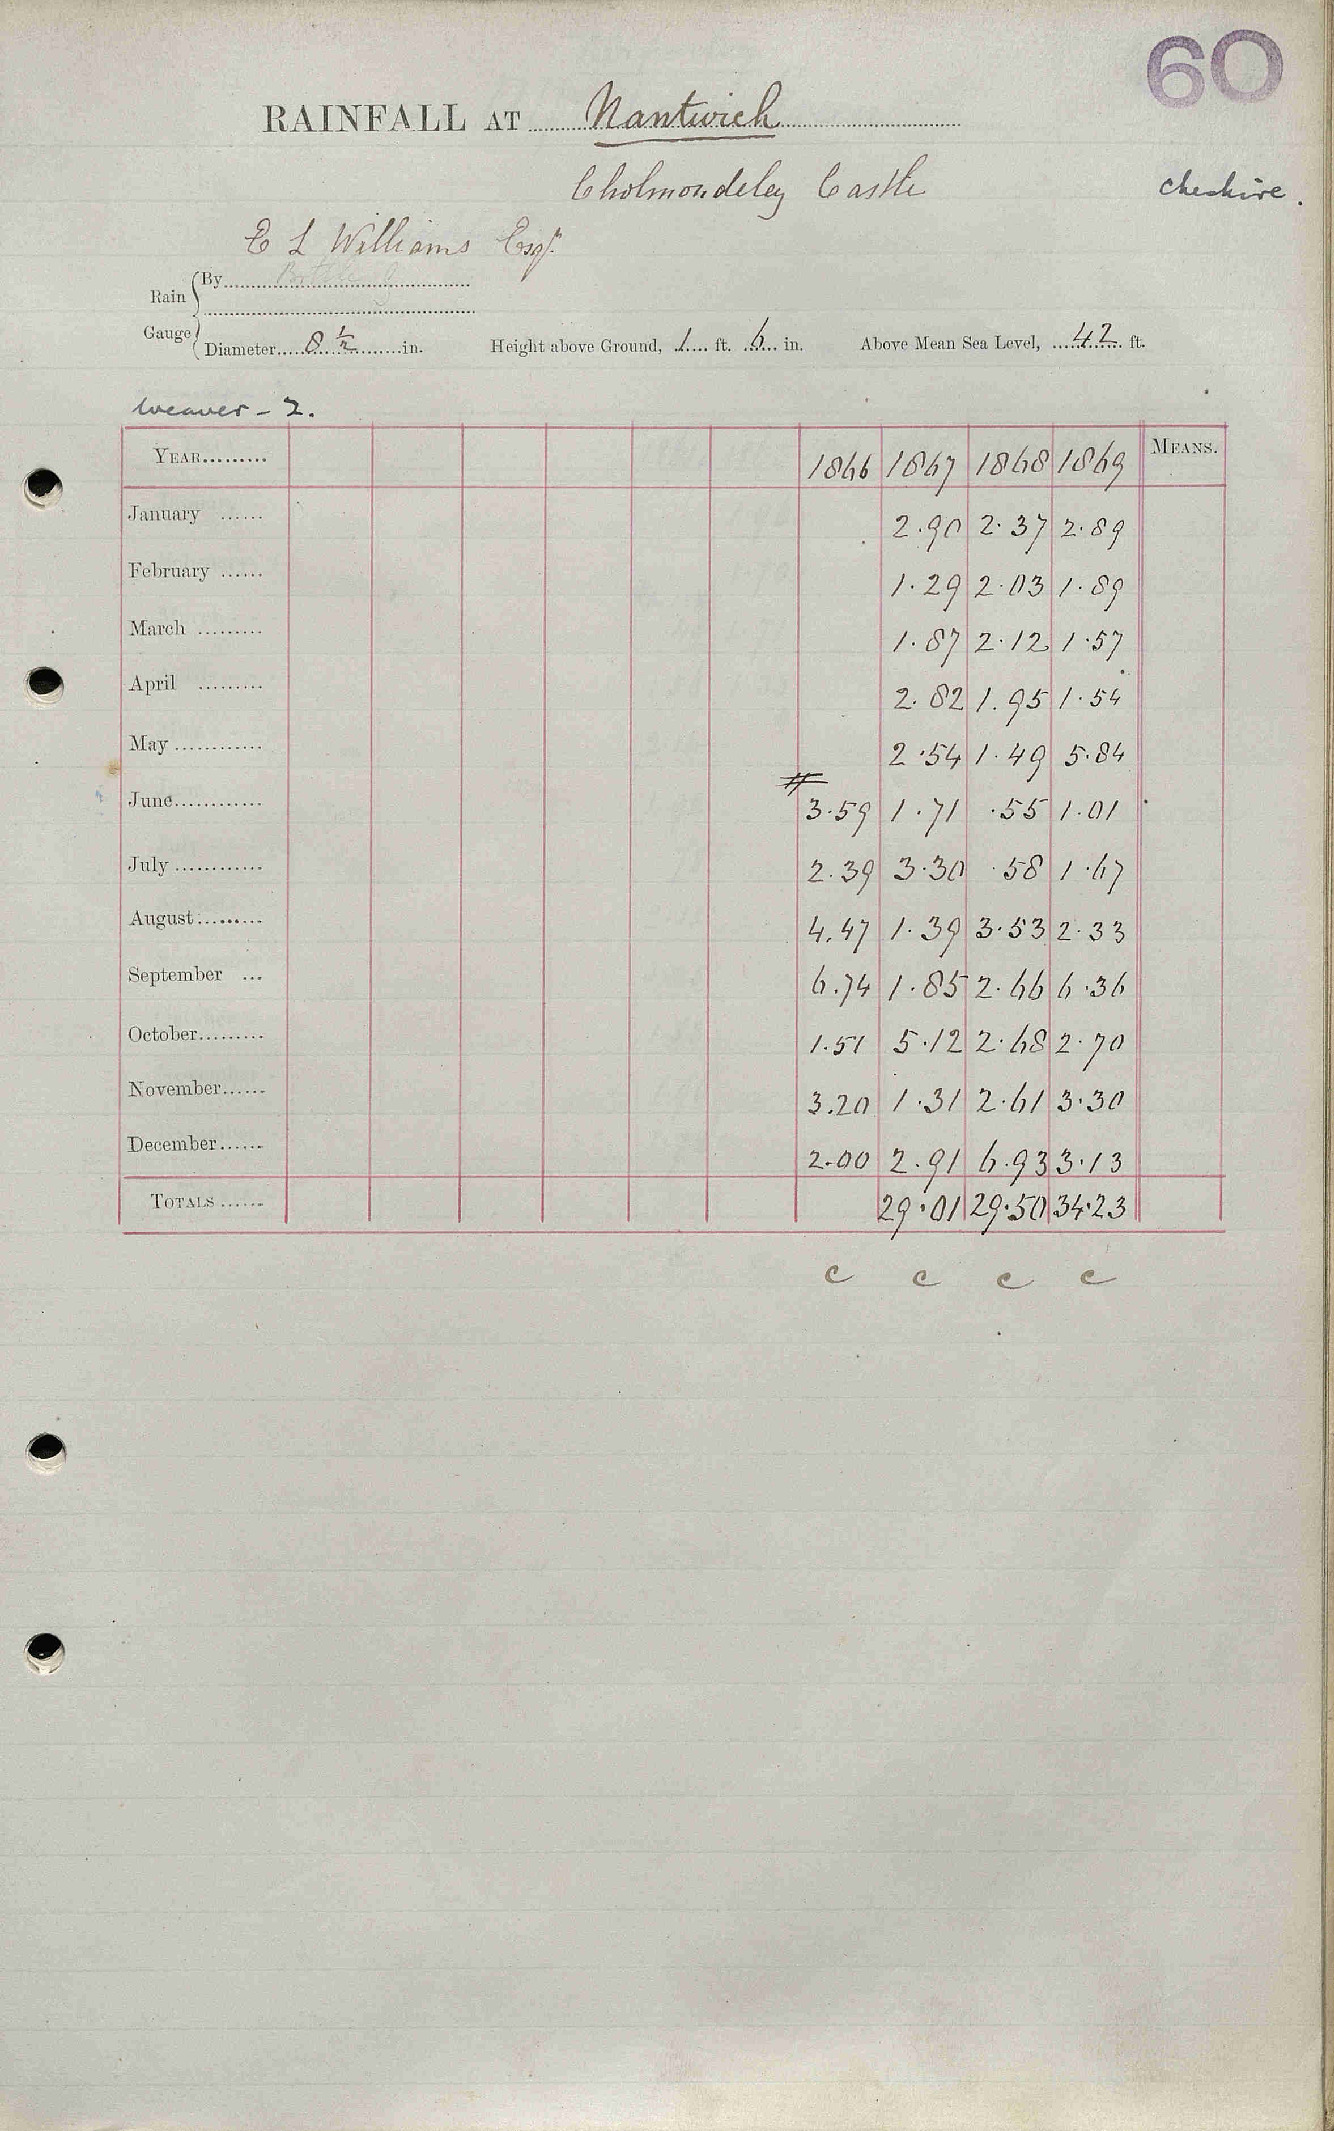 60
RAINFALL AT Nantwich
Cholmondeley Castle
cheshire.
E L Williams Esqr.
Rain Gauge
By
Diameter 8 1/2 in. Height above Ground, 1 ft. 6 in. Above Mean Sea Level, 42 ft.
Weaver - 2.
YEAR 1866 1867 1868 1869 MEANS.
January 2.90 2.37 2.89
February 1.29 2.03 1.89
March 1.87 2.12 1.57
April 2.82 1.95 1.54
May 2.54 1.49 5.84
June 3.59 1.71 .55 1.01
July 2.39 3.30 .58 1.67
August 4.47 1.39 3.53 2.33
September 6.74 1.85 2.66 6.36
October 1.51 5.12 2.68 2.70
November 3.20 1.31 2.61 3.30
December 2.00 2.91 6.93 3.13
TOTALS 29.01 29.50 34.23
c c c c